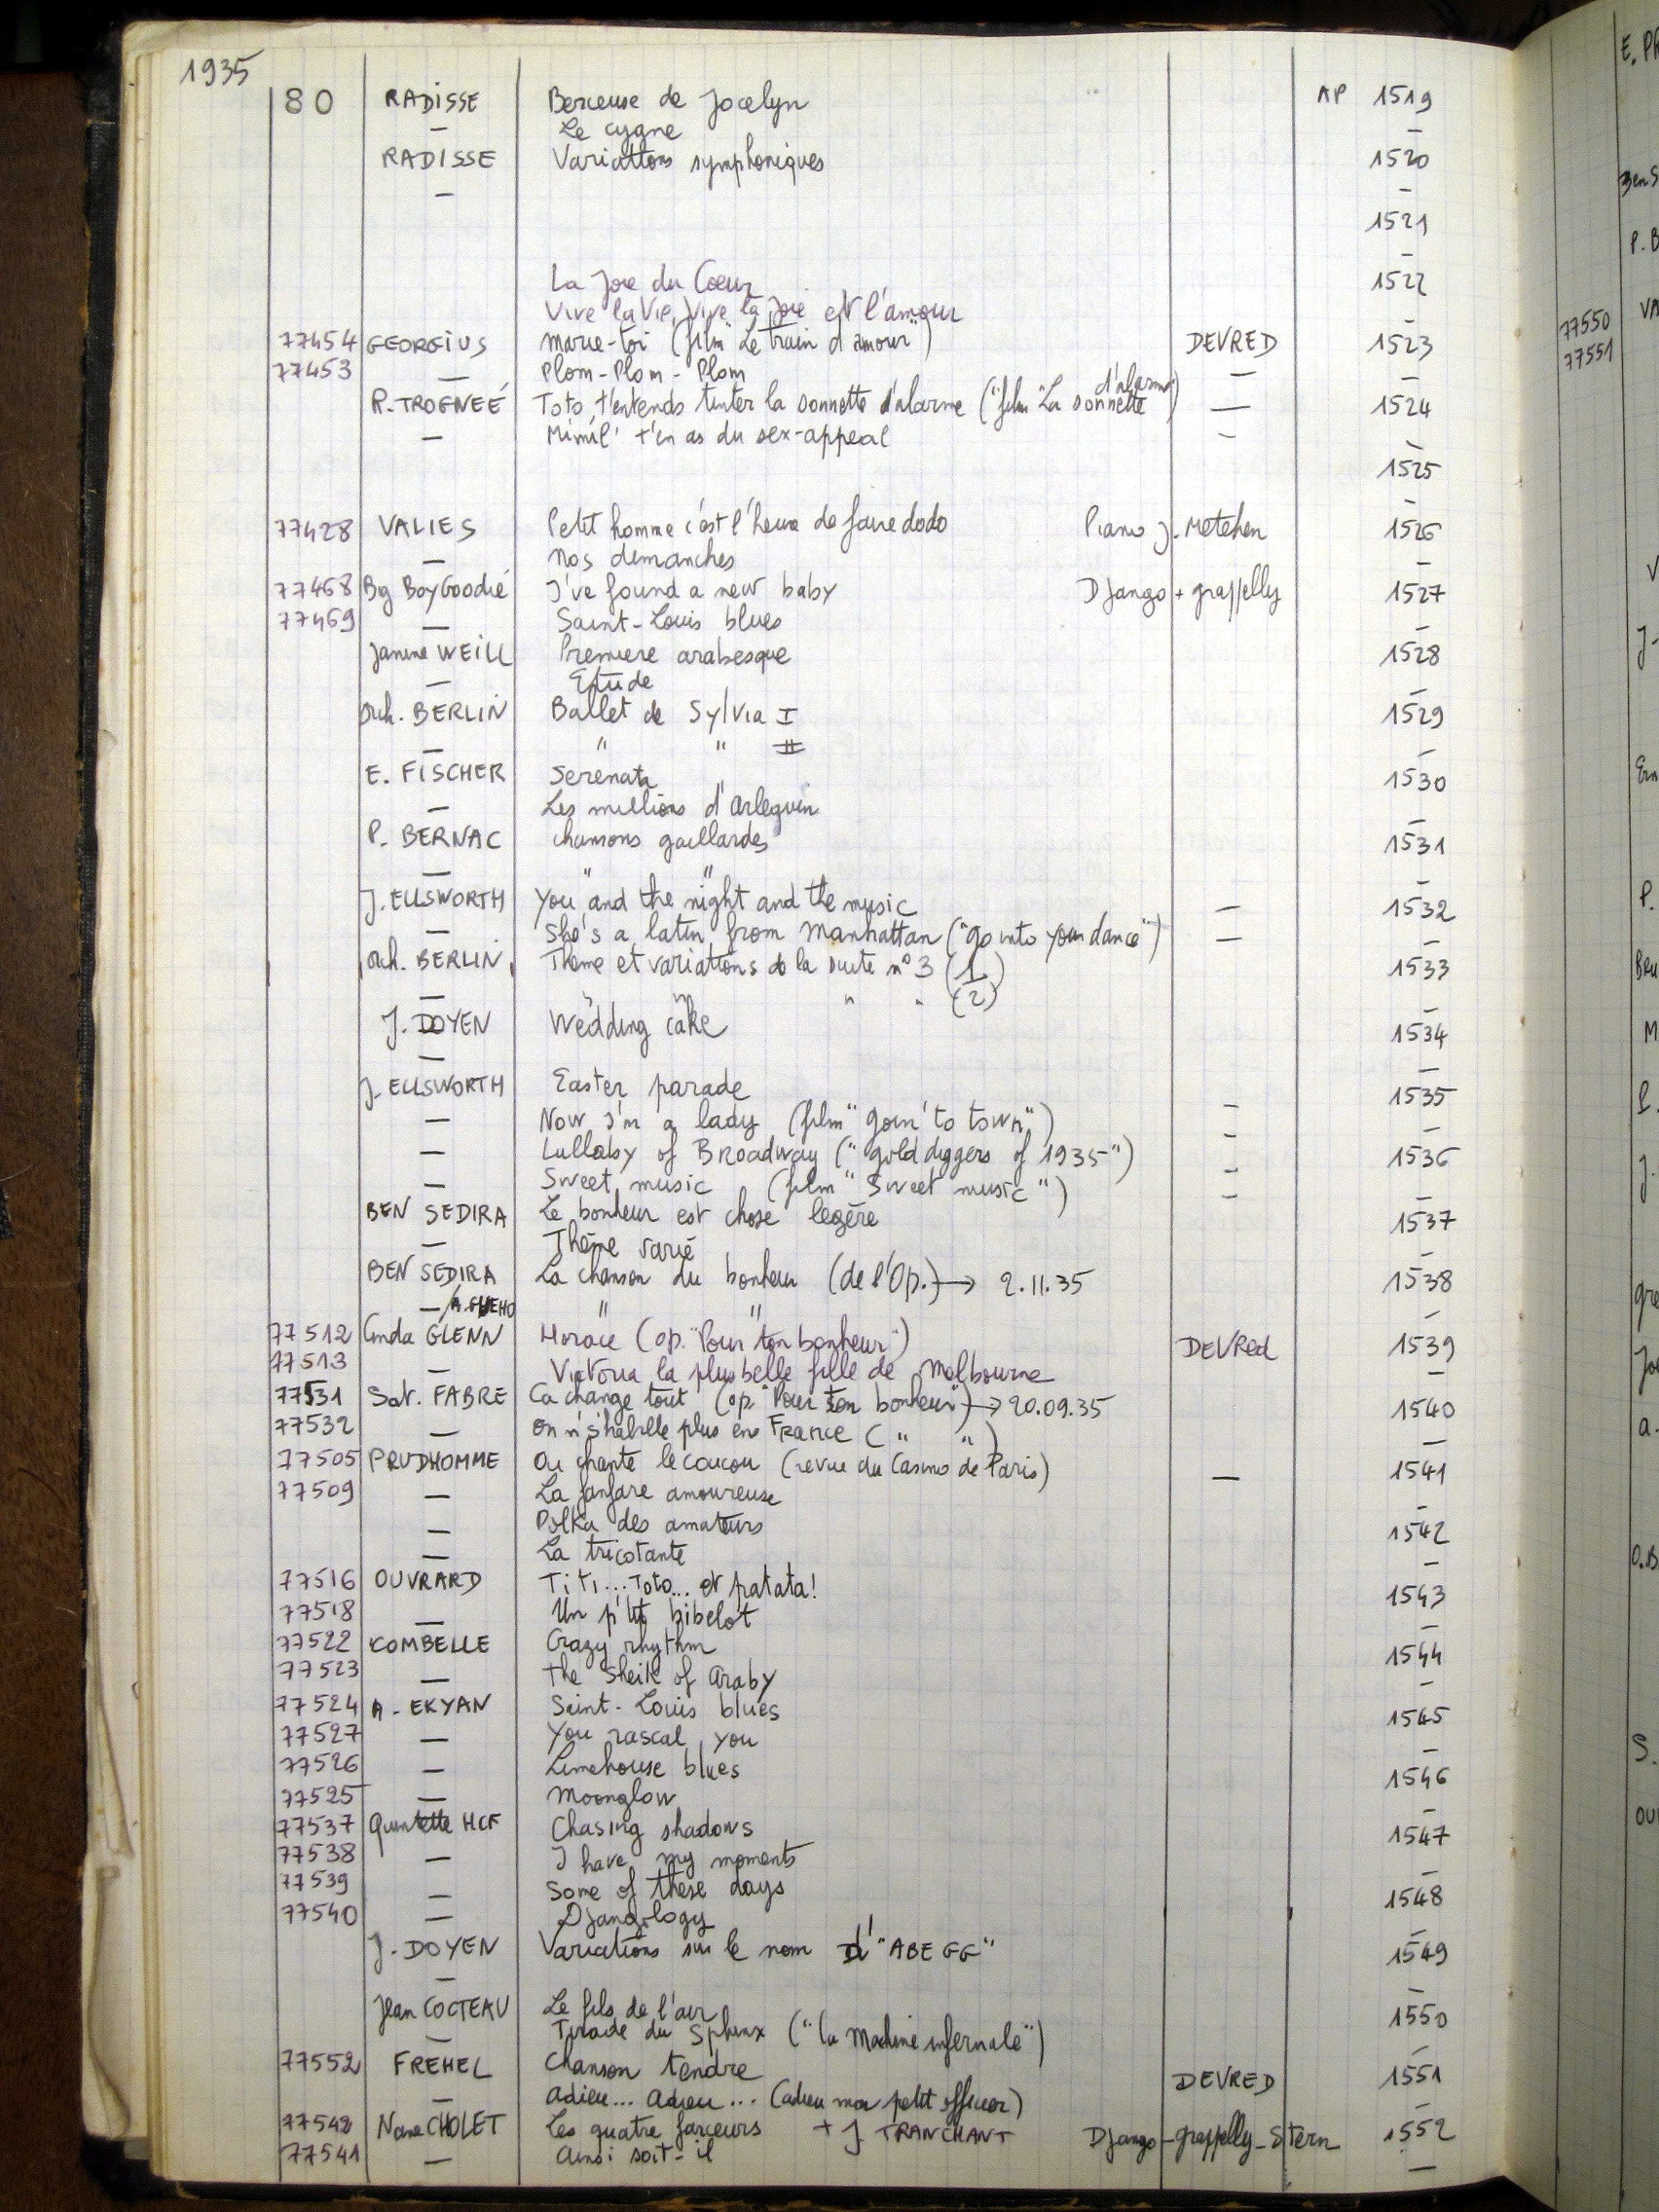 1935
80 RADISSE Berceuse de Jocelyn AP 1519
— Le cygne —
RADISSE Variations symphoniques 1520
— —
1521
—
La Joie du Coeur 1522
Vive la Vie, Vive la joie et l'amour —
77454 GEORGIUS Marie-toi (film "Le train d'amour") DEVRED 1523
77453 — Plom-Plom-Plom — —
R. TROGNEÉ Toto, t'entends tinter la sonnette d'alarme ("film "La sonnette d'alarme") — 1524
— Mimil' t'en as du sex-appeal — —
1525
—
77428 VALIES Petit homme c'est l'heure de faire dodo Piano J. Metehen 1526
— Nos dimanches —
77468 Big Boy Goodié I've found a new baby Django + grappelly 1527
77469 — Saint-Louis blues —
Janine WEILL Premiere arabesque 1528
— Etude —
Orch. BERLIN Ballet de Sylvia I 1529
— " " II —
E. FISCHER Serenata 1530
— Les millions d'arlequin —
P. BERNAC chansons gaillardes 1531
— " " —
J. ELLSWORTH You and the night and the music — 1532
— She's a latin from Manhattan ("go into your dance") — —
Orch. BERLIN Theme et variations de la suite n° 3 (1) 1533
— " " " " (2) —
J. DOYEN Wedding cake 1534
— —
J. ELLSWORTH Easter parade 1535
— Now I'm a lady (film "goin' to town") — —
— Lullaby of Broadway ("gold diggers of 1935") — 1536
— Sweet music (film "Sweet music") — —
BEN SEDIRA Le bonheur est chose legère 1537
— Thème varié —
BEN SEDIRA La chanson du bonheur (de l'Op.) → 2.11.35 1538
— " " —
77512 Cinda GLENN Horace (op. "Pour ton bonheur") DEVRed 1539
77513 — Victoria la plus belle fille de Melbourne —
77531 Sat. FABRE Ca change tout (op. "Pour ton bonheur") → 20.09.35 1540
77532 — on n's'habille plus en France (" ") —
77505 PRUDHOMME Ou chante le coucou (revue du Casino de Paris) — 1541
77509 — La fanfare amoureuse —
— Polka des amateurs 1542
— La tricotante —
77516 OUVRARD Titi...Toto... et patata! 1543
77518 — Un p'tit bibelot —
77522 COMBELLE Crazy rhythm 1544
77523 — the Sheik of Araby —
77524 A. EKYAN Saint-Louis blues 1545
77527 — You rascal you —
77526 — Limehouse blues 1546
77525 — Moonglow —
77537 Quintette HCF Chasing shadows 1547
77538 — I have my moments —
77539 — Some of these days 1548
77540 — Djangology —
J. DOYEN Variations sur le nom d'"ABEGG" 1549
— —
Jean COCTEAU Le fils de l'air 1550
— Tirade du Sphinx ("la Machine infernale") —
77552 FREHEL Chanson tendre DEVRED 1551
— Adieu... Adieu... (adieu mon petit officier) —
77542 Nane CHOLET Les quatre farceurs + J TRANCHANT Django-grappelly-Stern 1552
77541 — Ainsi soit-il —
E. PR
Ben S
P. B
77550 VA
77551
V
J-
P.
Bru
M
P.
J.
gre
a.
O.B
S.
OU